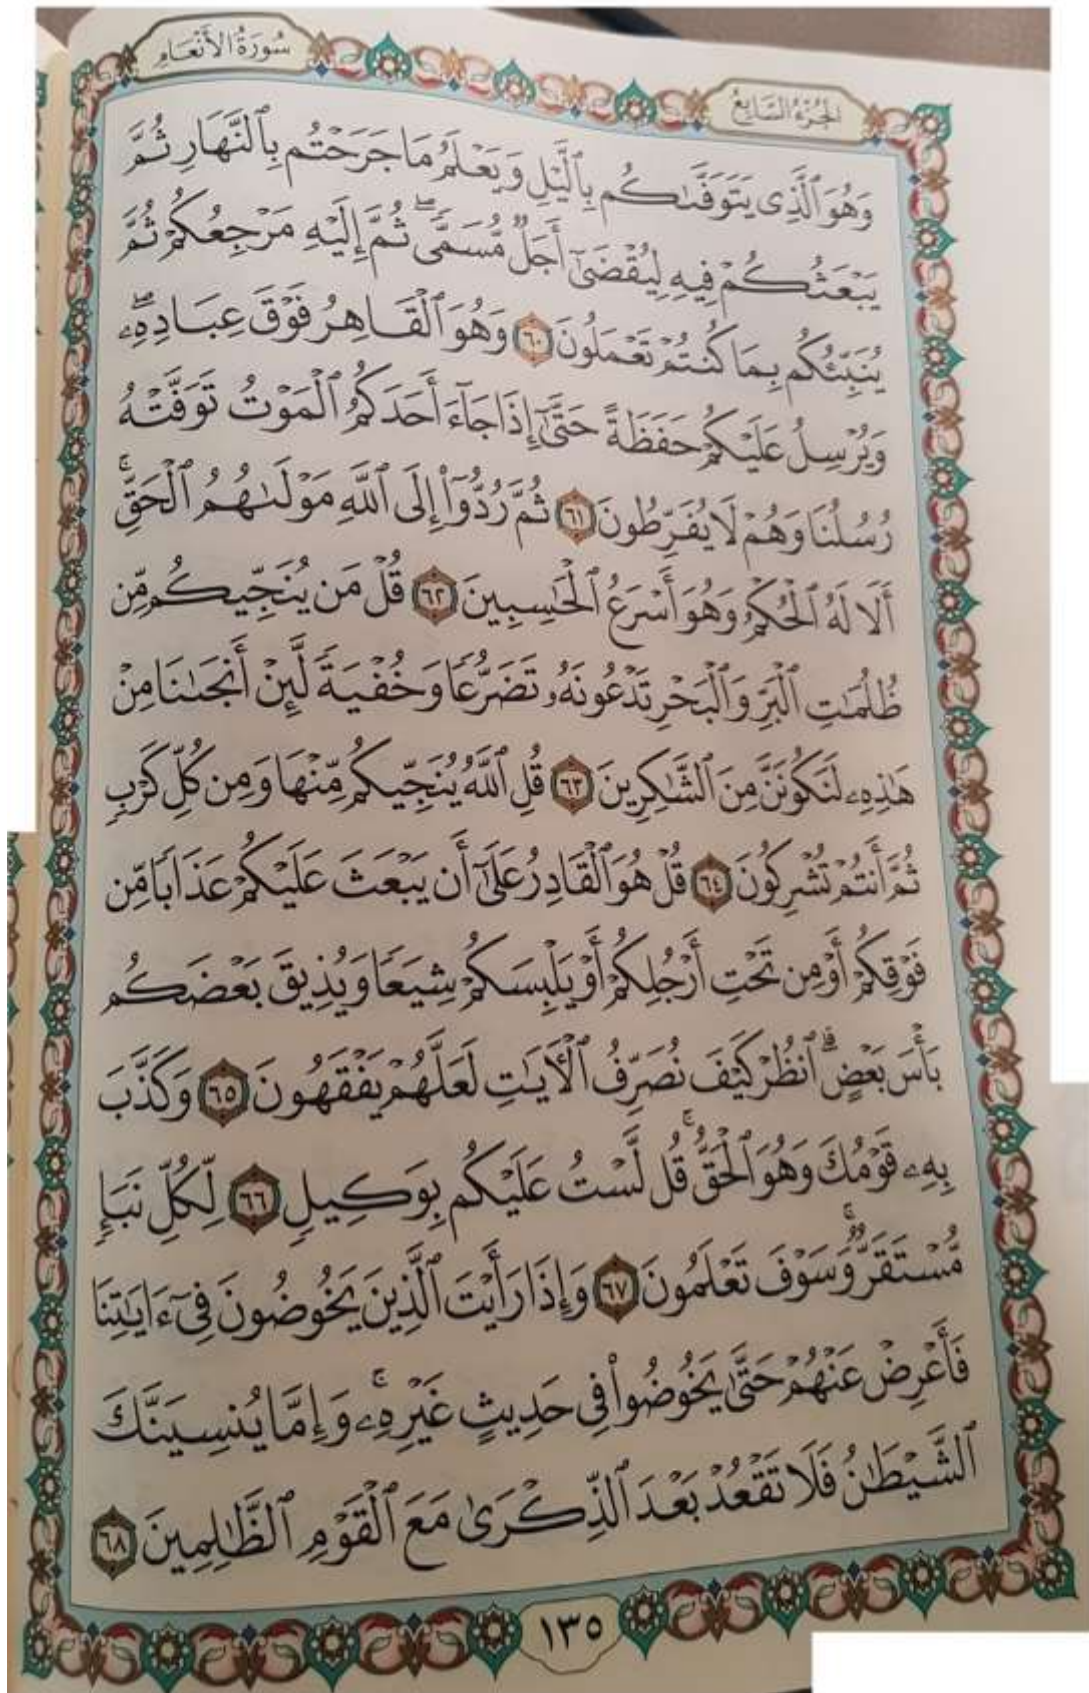 سُورَةُ الأَنْعَامِ
الجُزْءُ السَّابِعُ
وَهُوَ ٱلَّذِى يَتَوَفَّىٰكُم بِٱلَّيْلِ وَيَعْلَمُ مَا جَرَحْتُم بِٱلنَّهَارِ ثُمَّ
يَبْعَثُكُمْ فِيهِ لِيُقْضَىٰٓ أَجَلٌ مُّسَمًّى ۖ ثُمَّ إِلَيْهِ مَرْجِعُكُمْ ثُمَّ
يُنَبِّئُكُم بِمَا كُنتُمْ تَعْمَلُونَ ٦٠ وَهُوَ ٱلْقَاهِرُ فَوْقَ عِبَادِهِۦ ۖ
وَيُرْسِلُ عَلَيْكُمْ حَفَظَةً حَتَّىٰٓ إِذَا جَآءَ أَحَدَكُمُ ٱلْمَوْتُ تَوَفَّتْهُ
رُسُلُنَا وَهُمْ لَا يُفَرِّطُونَ ٦١ ثُمَّ رُدُّوٓا۟ إِلَى ٱللَّهِ مَوْلَىٰهُمُ ٱلْحَقِّ ۚ
أَلَا لَهُ ٱلْحُكْمُ وَهُوَ أَسْرَعُ ٱلْحَـٰسِبِينَ ٦٢ قُلْ مَن يُنَجِّيكُم مِّن
ظُلُمَـٰتِ ٱلْبَرِّ وَٱلْبَحْرِ تَدْعُونَهُۥ تَضَرُّعًا وَخُفْيَةً لَّئِنْ أَنجَىٰنَا مِنْ
هَـٰذِهِۦ لَنَكُونَنَّ مِنَ ٱلشَّـٰكِرِينَ ٦٣ قُلِ ٱللَّهُ يُنَجِّيكُم مِّنْهَا وَمِن كُلِّ كَرْبٍ
ثُمَّ أَنتُمْ تُشْرِكُونَ ٦٤ قُلْ هُوَ ٱلْقَادِرُ عَلَىٰٓ أَن يَبْعَثَ عَلَيْكُمْ عَذَابًا مِّن
فَوْقِكُمْ أَوْ مِن تَحْتِ أَرْجُلِكُمْ أَوْ يَلْبِسَكُمْ شِيَعًا وَيُذِيقَ بَعْضَكُم
بَأْسَ بَعْضٍ ۗ ٱنظُرْ كَيْفَ نُصَرِّفُ ٱلْـَٔايَـٰتِ لَعَلَّهُمْ يَفْقَهُونَ ٦٥ وَكَذَّبَ
بِهِۦ قَوْمُكَ وَهُوَ ٱلْحَقُّ ۚ قُل لَّسْتُ عَلَيْكُم بِوَكِيلٍ ٦٦ لِّكُلِّ نَبَإٍ
مُّسْتَقَرٌّ ۚ وَسَوْفَ تَعْلَمُونَ ٦٧ وَإِذَا رَأَيْتَ ٱلَّذِينَ يَخُوضُونَ فِىٓ ءَايَـٰتِنَا
فَأَعْرِضْ عَنْهُمْ حَتَّىٰ يَخُوضُوا۟ فِى حَدِيثٍ غَيْرِهِۦ ۚ وَإِمَّا يُنسِيَنَّكَ
ٱلشَّيْطَـٰنُ فَلَا تَقْعُدْ بَعْدَ ٱلذِّكْرَىٰ مَعَ ٱلْقَوْمِ ٱلظَّـٰلِمِينَ ٦٨
١٣٥